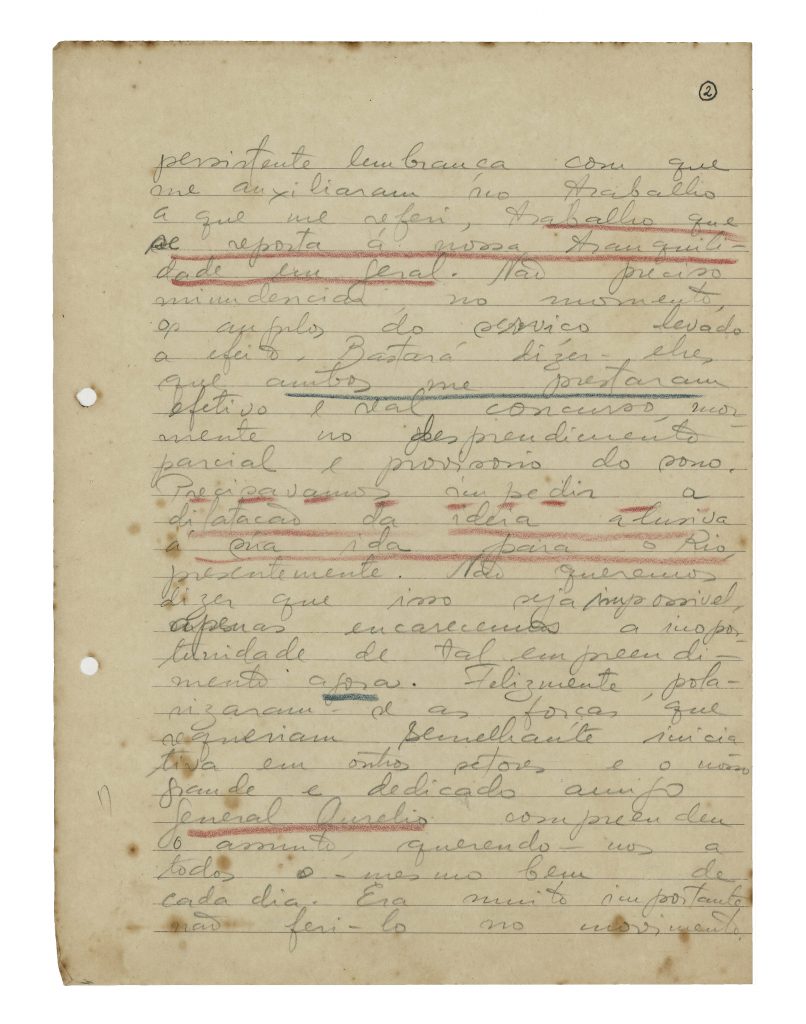 2
persistente lembranca com que
me auxiliaram no trabalho
a que me referi, trabalho que
se reporta á nossa tranquili-
dade em geral. Não preciso
minudenciar, no momento,
os angulos do serviço levado
a efeito. Bastará dizer-lhes
que ambos me prestaram
efetivo e real concurso, mor-
mente no desprendimento
parcial e provisorio do sono.
Precisavamos impedir a
dilatacão da ideia alusiva
á sua ida para o Rio,
presentemente. Não queremos
dizer que isso seja impossivel,
apenas encarecemos a inopor-
tunidade de tal empreendi-
mento agora. Felizmente, pola-
rizaram-se as forças que
requeriam semelhante inicia
tiva em outros setores e o nosso
grande e dedicado amigo
General Aurelio compreendeu
o assunto, querendo-nos a
todos o mesmo bem de
cada dia. Era muito importante
não feri-lo no movimento.